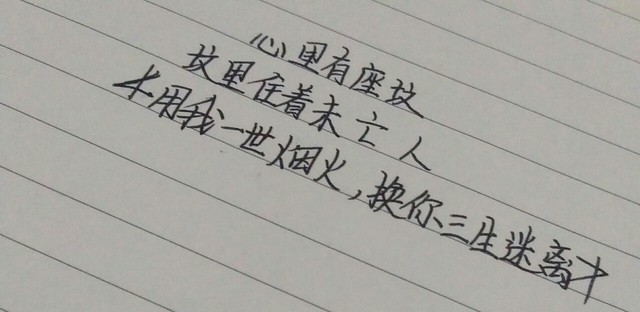 心里有座坟
坟里住着未亡人
《用我一世烟火，换你三生迷离》